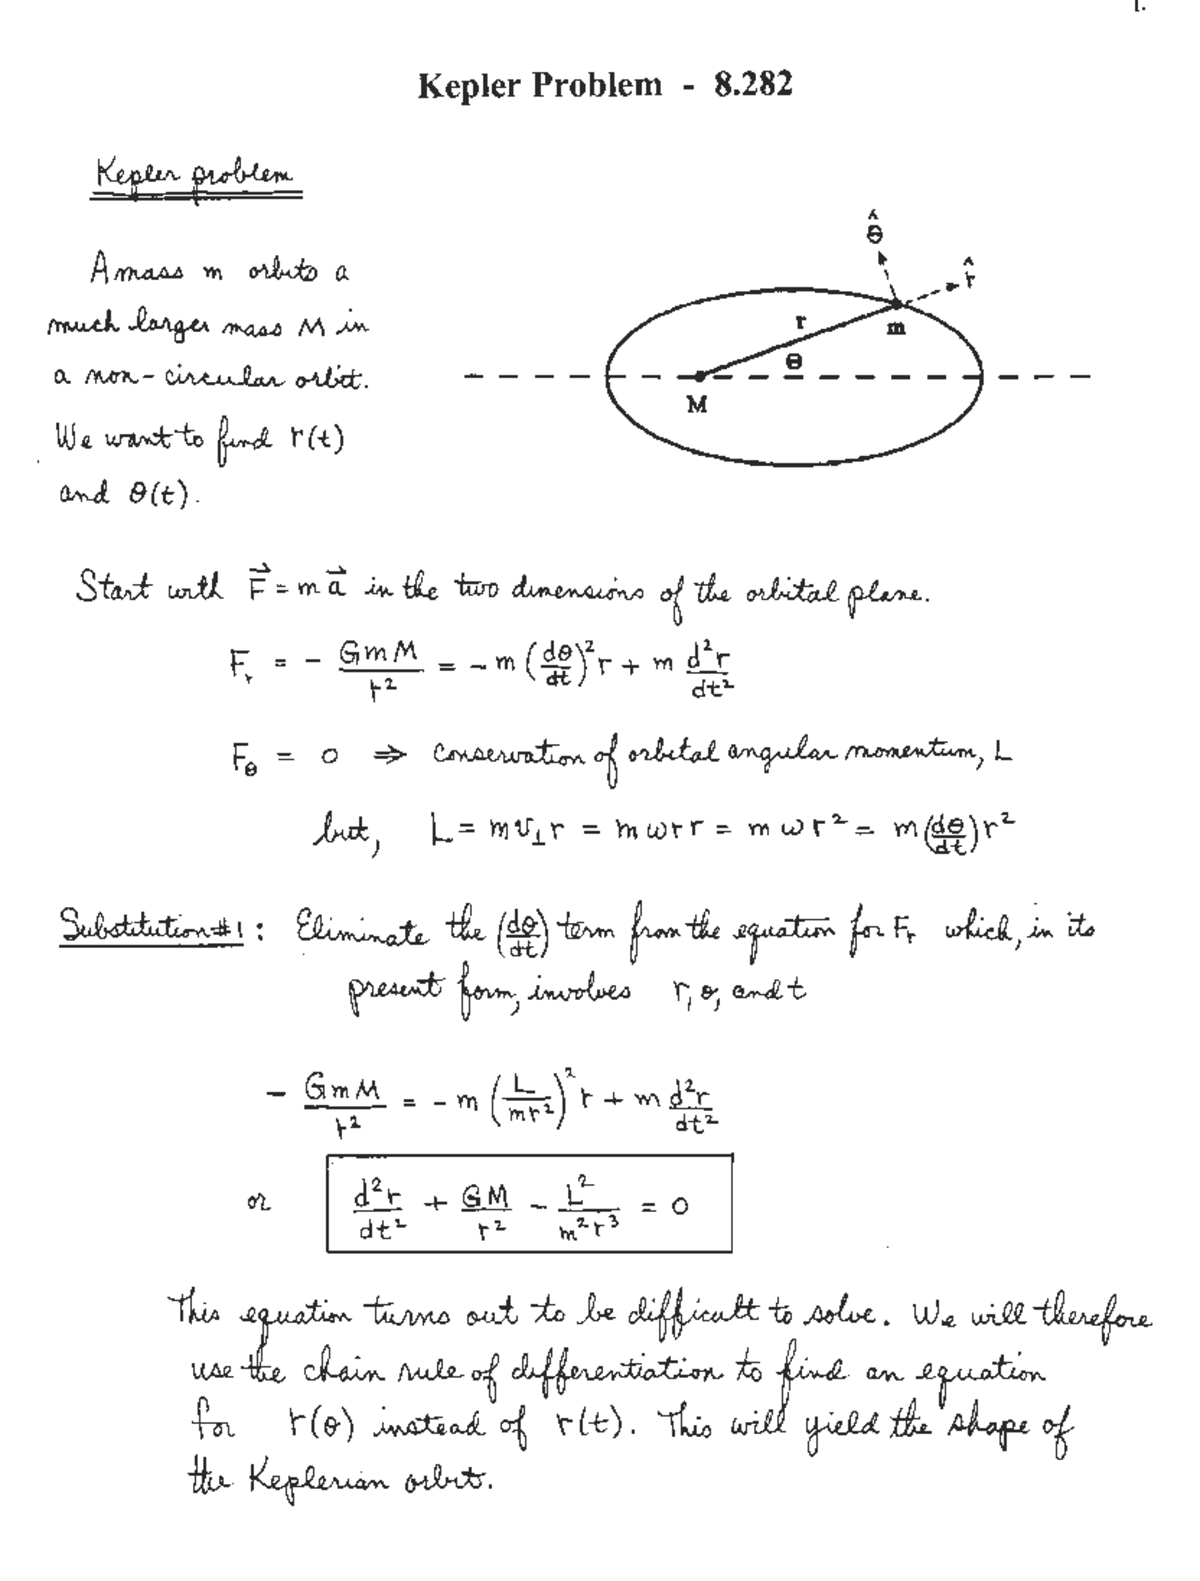 1.
Kepler Problem - 8.282
Kepler problem
A mass m orbits a
much larger mass M in
a non-circular orbit.
We want to find r(t)
and θ(t).
θ̂
r̂
r
m
θ
M
Start with F⃗ = m a⃗ in the two dimensions of the orbital plane.
F_r = - GmM/r² = -m (dθ/dt)² r + m d²r/dt²
F_θ = 0 ⇒ conservation of orbital angular momentum, L
but, L = m v_⊥ r = m ω r r = m ω r² = m (dθ/dt) r²
Substitution #1: Eliminate the (dθ/dt) term from the equation for F_r which, in its
present form, involves r, θ, and t
- GmM/r² = -m (L/mr²)² r + m d²r/dt²
or d²r/dt² + GM/r² - L²/m²r³ = 0
This equation turns out to be difficult to solve. We will therefore
use the chain rule of differentiation to find an equation
for r(θ) instead of r(t). This will yield the shape of
the Keplerian orbit.